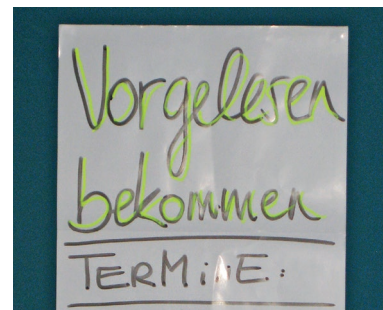 Vorgelesen
bekommen
TERMiNE: